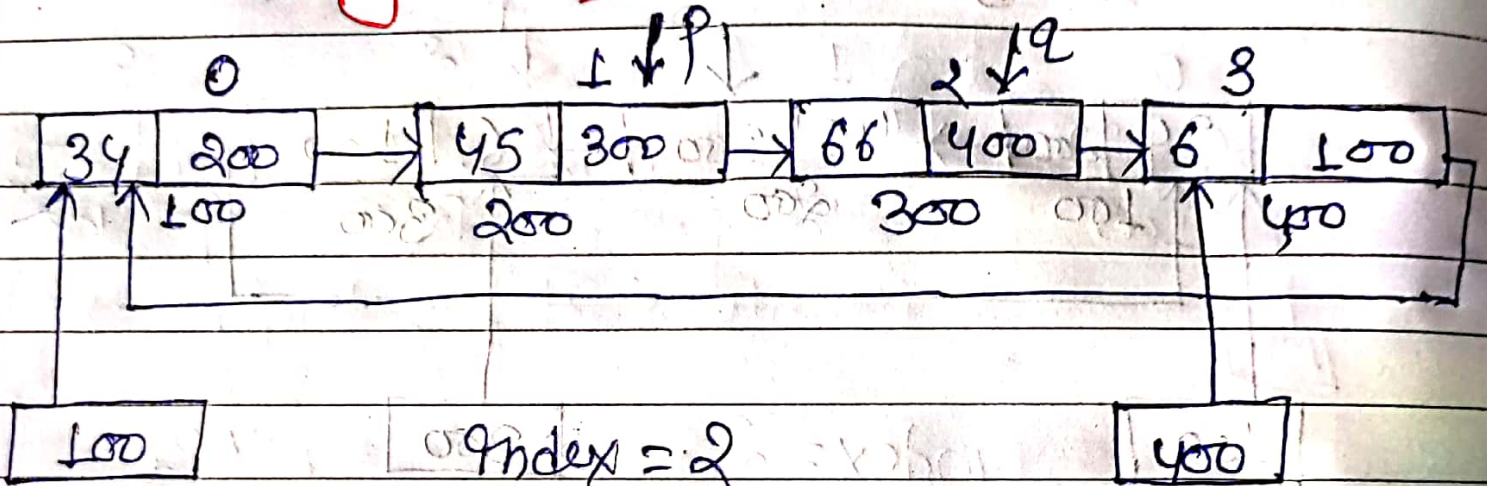 0 1 p 2 q 3
34 200 45 300 66 400 6 100
100 200 300 400
100 Index = 2 400